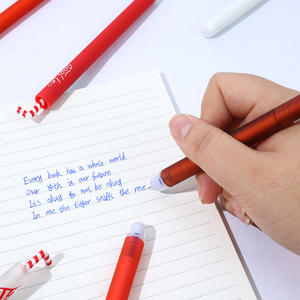 Every book has a whole world
Our wish is our future
It's okay to not be okay
In me the tiger sniffs the rose